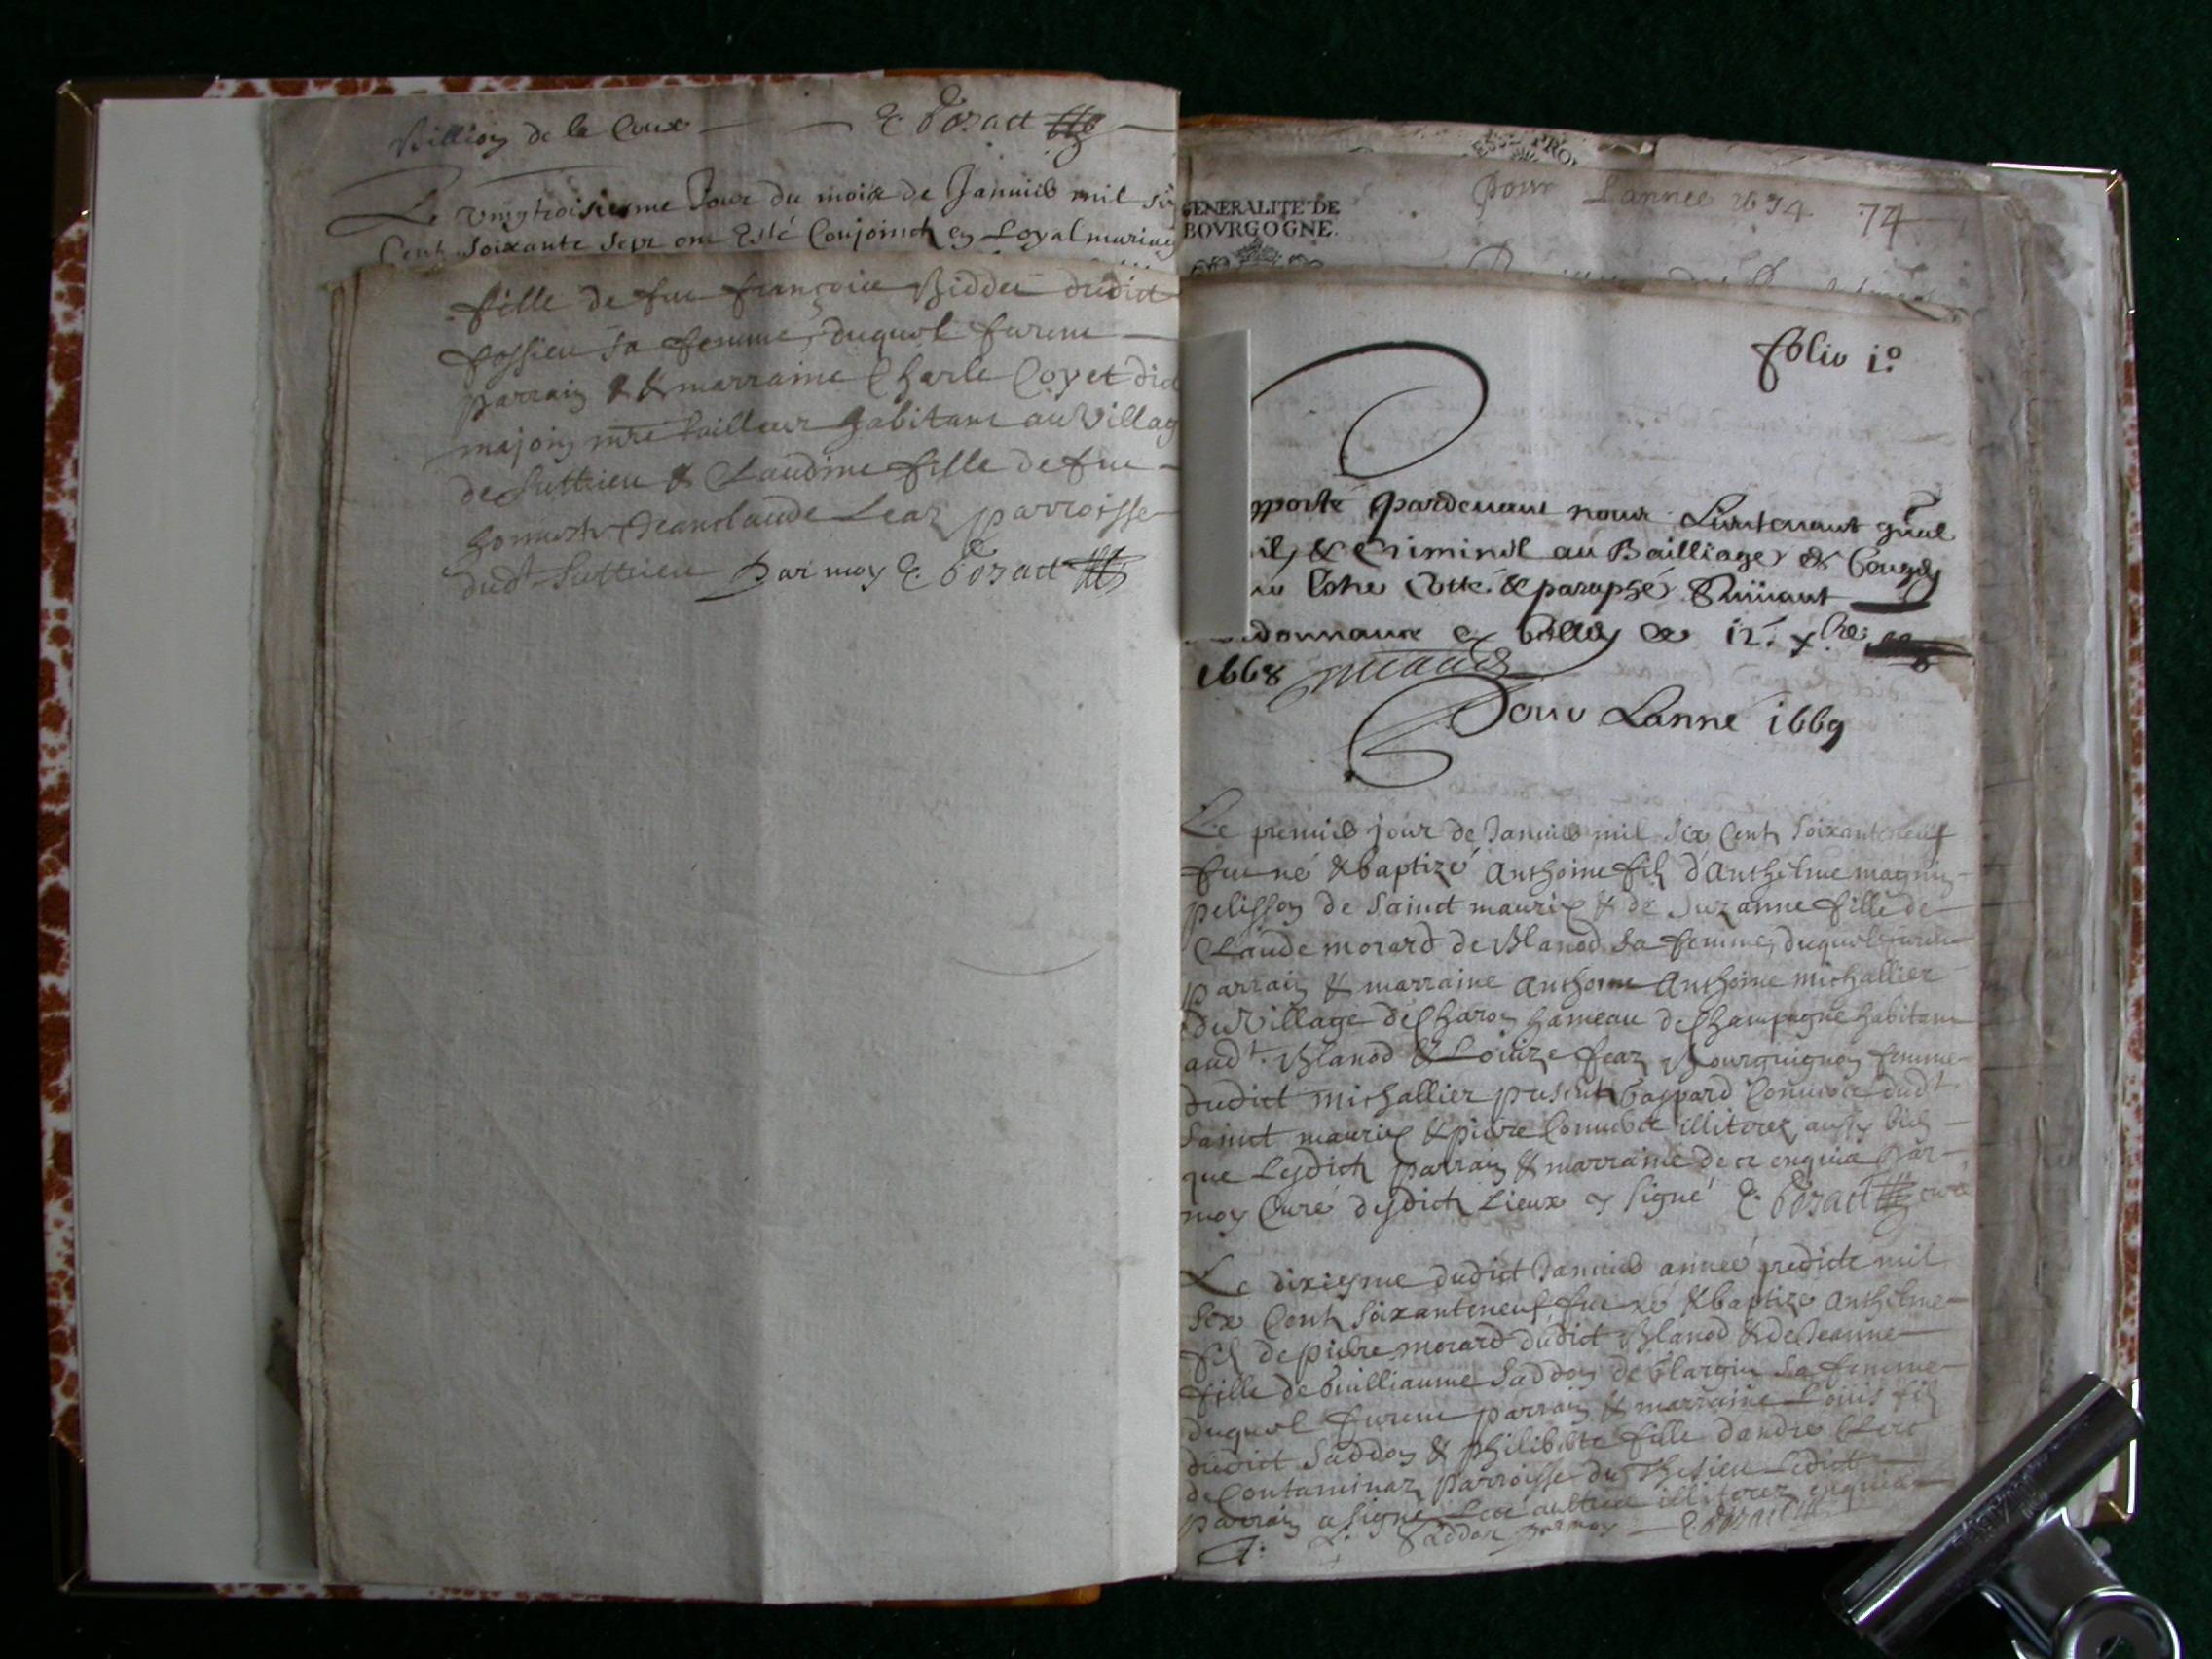 Billion de la Coux E. Bozact
Le vingtroisiesme Jour du mois de Janvier mil six
Cent soixante sept ont Esté Conjoincts en Loyal mariag
fille de feu françoise Biddei dudict
fossieu sa femme, duquel furent
parrain & marraine Charle Coyet dict
majoin mre tailleur habitant au Villag
de Suttrieu & Claudine fille de feu
honneste Jeanclaude Leaz parroisse
dudt Suttrieu Par moy E. Bozact
ESSE PRO
GENERALITE DE
BOVRGOGNE.
Pour Lannee 1674 74
folio 1o
pporté Pardevant nous Lieutenant gñal
il, & Criminel au Bailliage de Beugey
Cotté & paraphé Suivant
donnance a Belley ce 12. xbre
1668
Pour Lanné 1669
Le premier jour de Janvier mil six Cent soixanteneuf
fut né & baptizé Anthoine fils d'Anthelme magnin
pelisson de Sainct maurix & de Suzanne fille de
Claude morard de Blanod sa femme, duquel furent
parrain & marraine Anthoine Anthoine michallier
du Village de Charon hameau de Champagne habitant
audt. Blanod & Louize feaz Bourguignon femme
dudict michallier presents Gaspard dudt.
Sainct maurix & pierre illiterez aussy bien
que Lesdicts parrain & marraine de ce enquis Par
moy Curé desdicts Lieux & signé E. Bozact curé
Le dixiesme dudict Janvier année predicte mil
Six Cent Soixanteneuf fut né & baptizé Anthelme
fils de pierre morard dudict Blanod & de Jeanne
fille de Guilliaume Saddon de Flargin sa femme
duquel furent parrain & marraine Louis fils
dudict Saddon & philiberte fille dandre Clerc
de Contaminaz Parroisse de Thesieu Ledict
parrain a signé Les aultres illiterez enquis
L. Saddon par moy E. Bozact